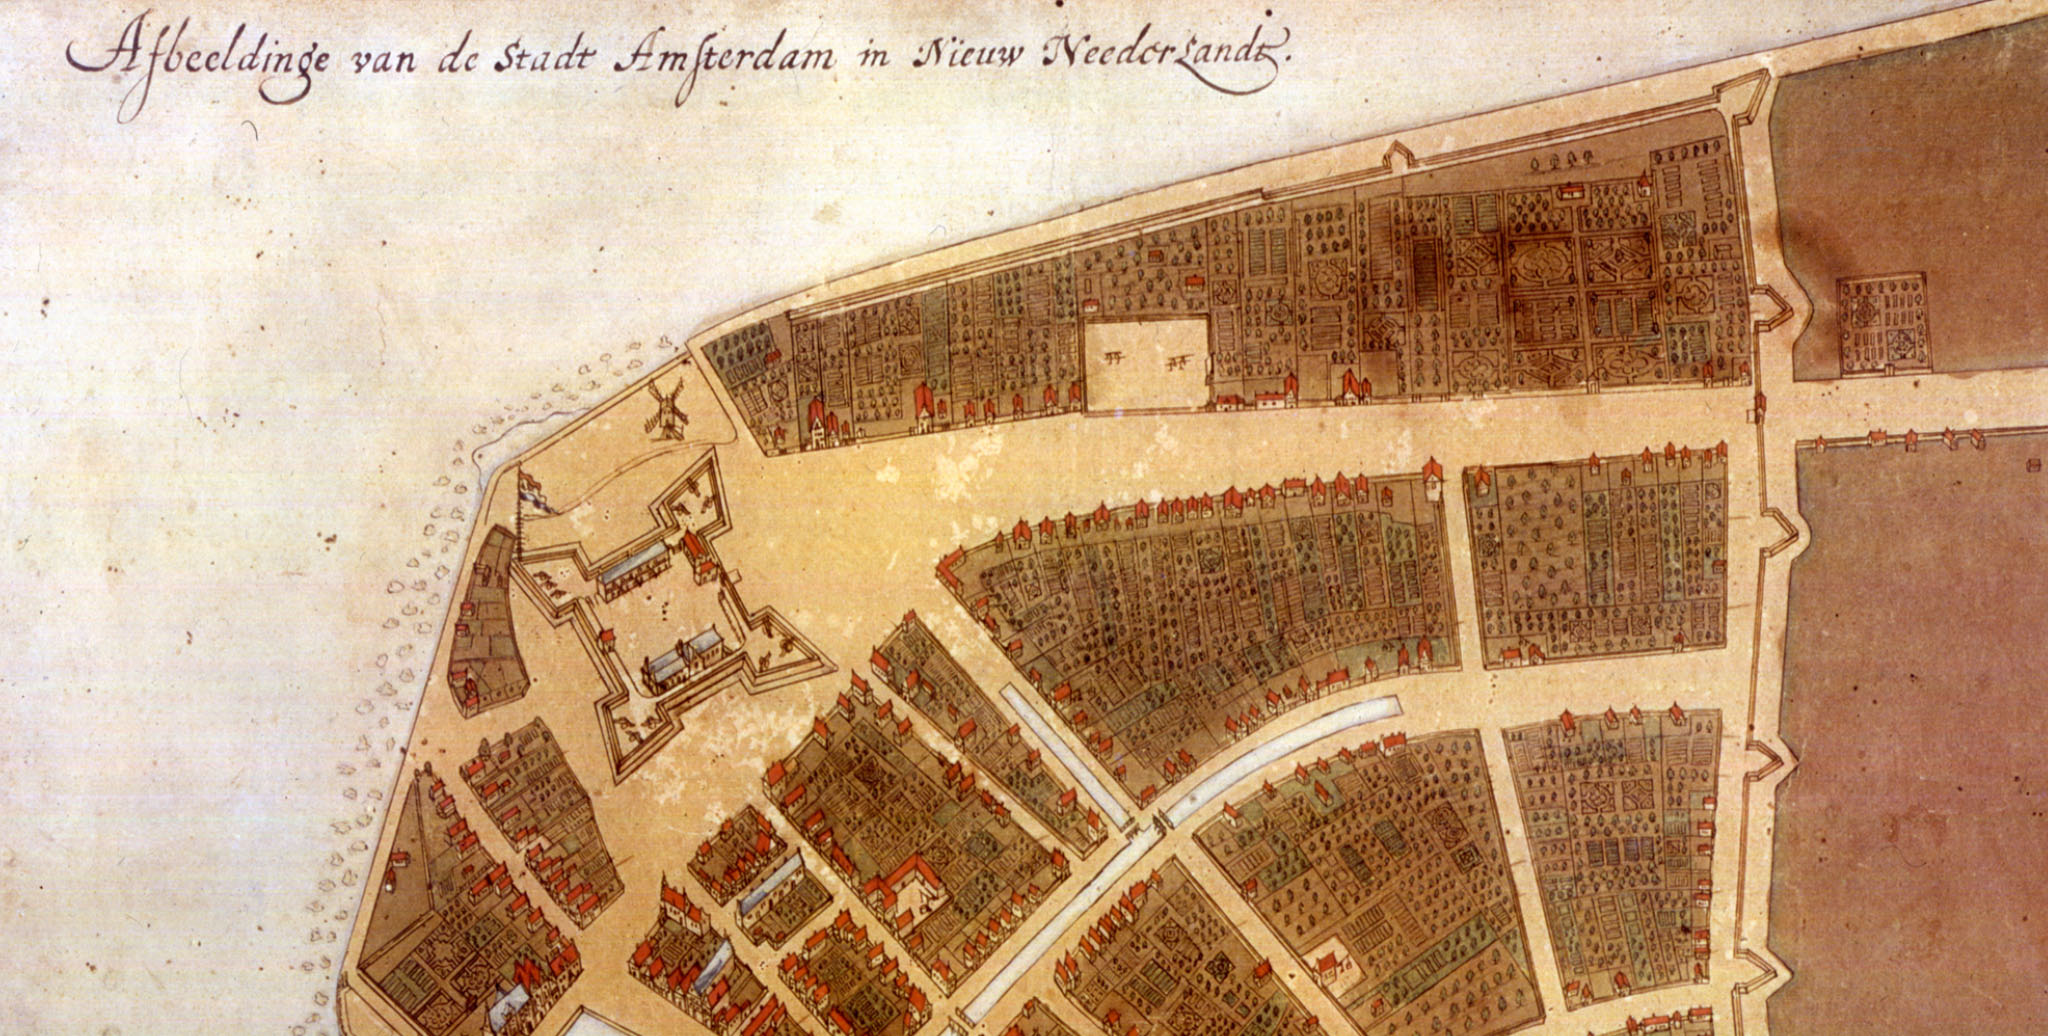 Afbeeldinge van de Stadt Amsterdam in Nieuw Neederlandt.
16